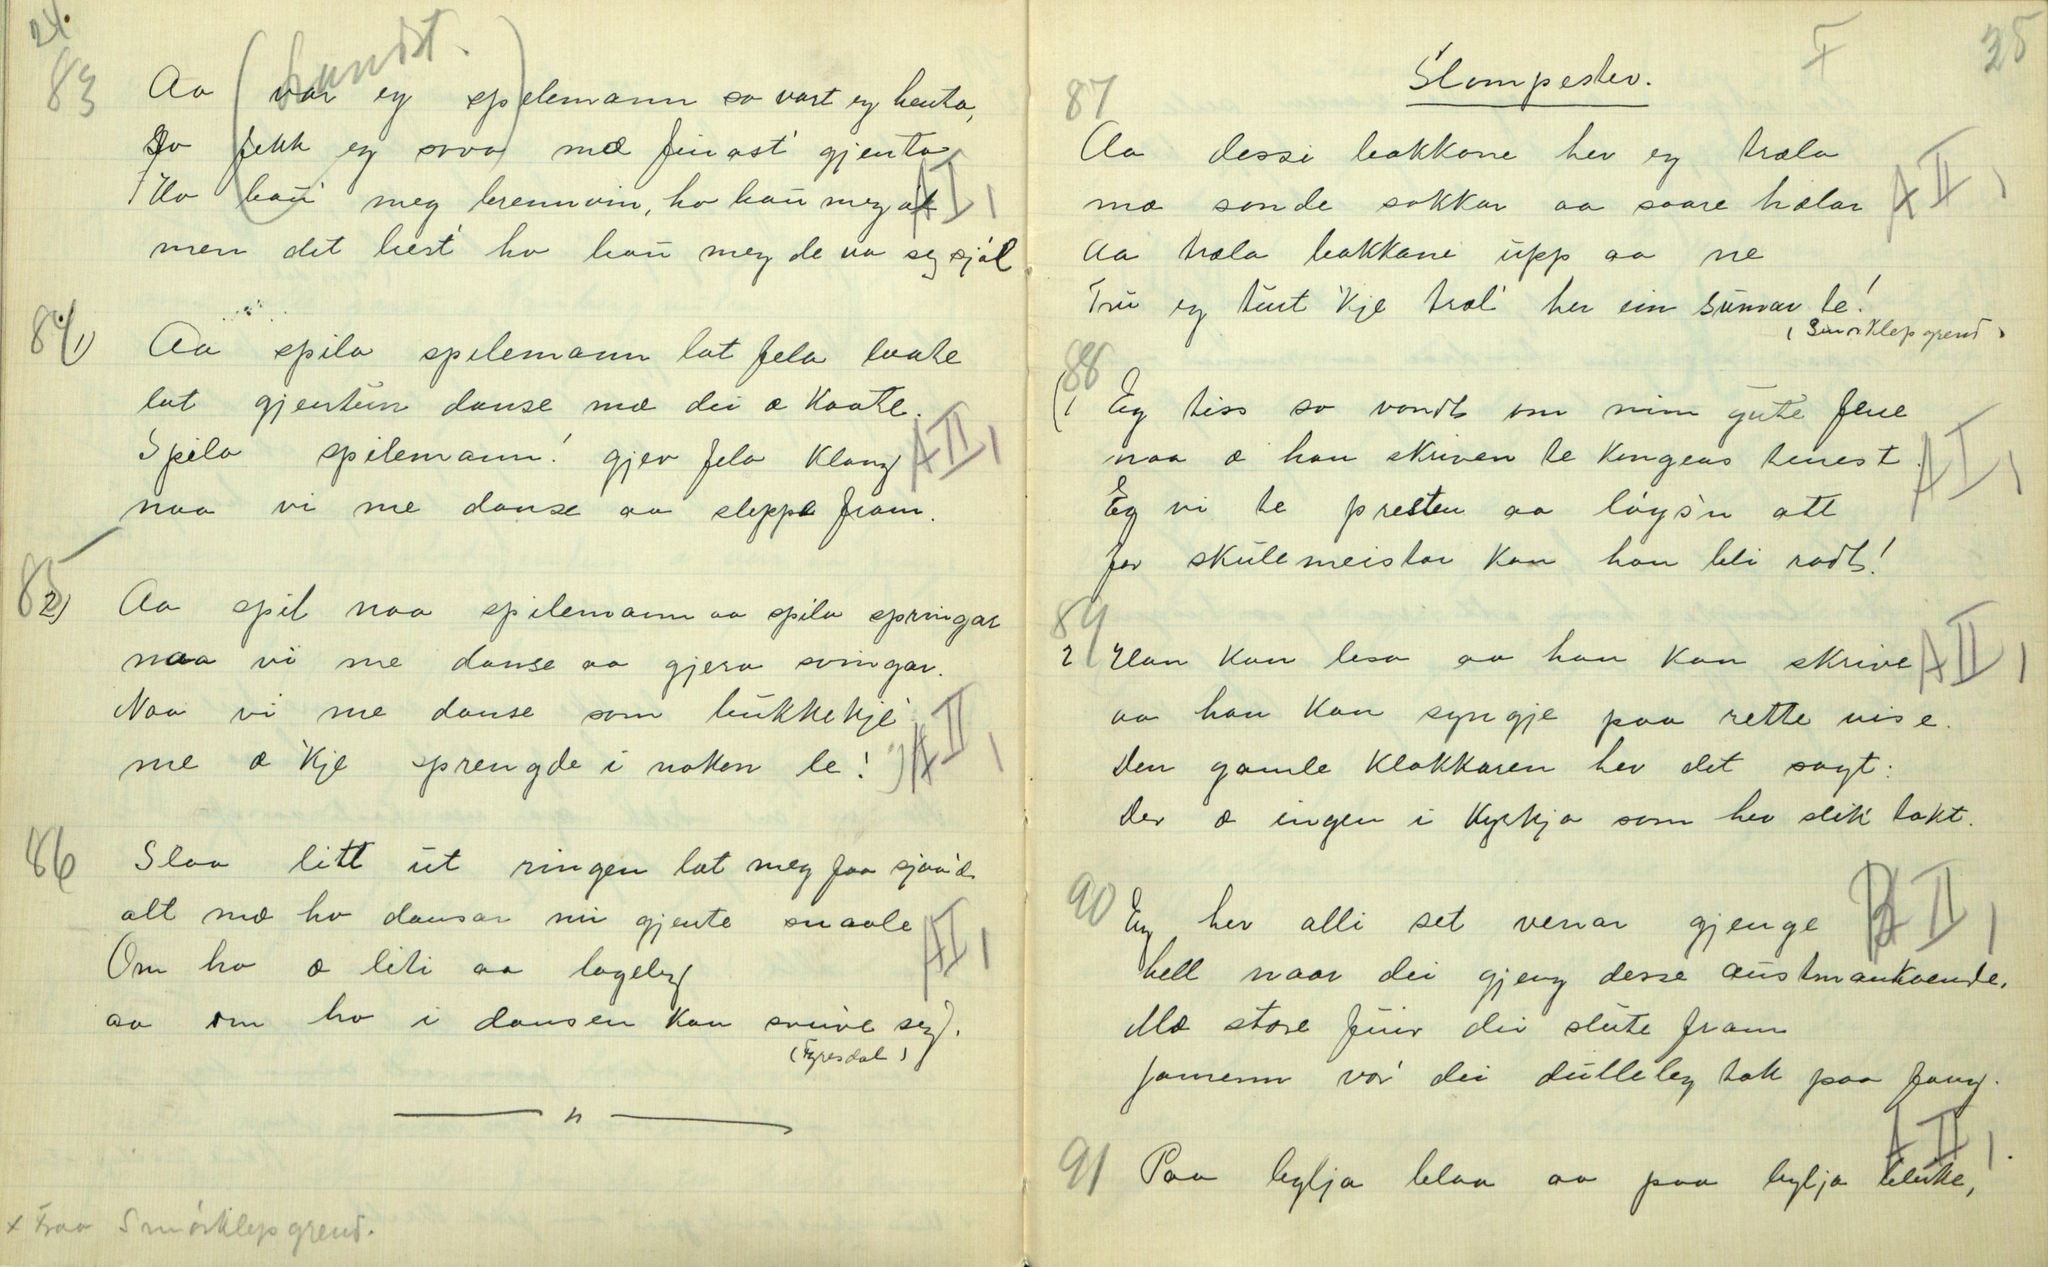 24.
83
(hundst.)
Aa var eg spelemann so vart eg henta,
So fekk eg sova mæ finast' gjenta
Ho bau' meg brennvin, ho bau meg øl
men det best' ho bau meg de va seg sjøl
AI,
84 1)
Aa spila spelemann lat fela laate
lat gjentun danse mæ dei æ kaate.
Spela spelemann! gjev fela klang
naa vi me danse aa sleppe fram.
AII,
85 2)
Aa spil naa spelemann aa spila springar
naa vi me danse aa gjera svingar.
Naa vi me danse som bukkekje
me æ 'kje sprengde i noken le!
AII,
86
Slaa litt ut ringen lat meg faa sjaa'd
alt mæ ho dansar mi gjente snaale
Om ho æ liti aa lageleg
aa om ho i dansen kan snuve seg.
(Fyresdal)
AI,
x Fraa Smørklepgrend.
F
25
Slompestev.
87
Aa dessi bakkane hev eg træla
mæ sonde sokkar aa saare hælar
Aa træla bakkane upp aa ne
Tru eg turt 'kje træl' her ein sumar te!
(Smørklepgrend)
AII,
88
(1
Eg tiss so vondt om min gute fene
naa æ han skriven te kongeas tenest.
Eg vi te presten aa løys'n att
for skulemeistar kan han bli radt!
AI,
89
2
Han kan lesa aa han kan skrive
aa han kan syngje paa rette vise.
Den gamle klokkaren hev det sagt:
der æ ingen i kyrkja som hev slik takt.
AII,
90
Eg hev alli set venar gjenge
hell naar dei gjeng desse austmankvende.
Mæ store fuir dei slute fram
jamenn vor' dei dulleleg tak paa fang.
BII,
91
Paa bylja blaa aa paa bylja bleike,
AII,